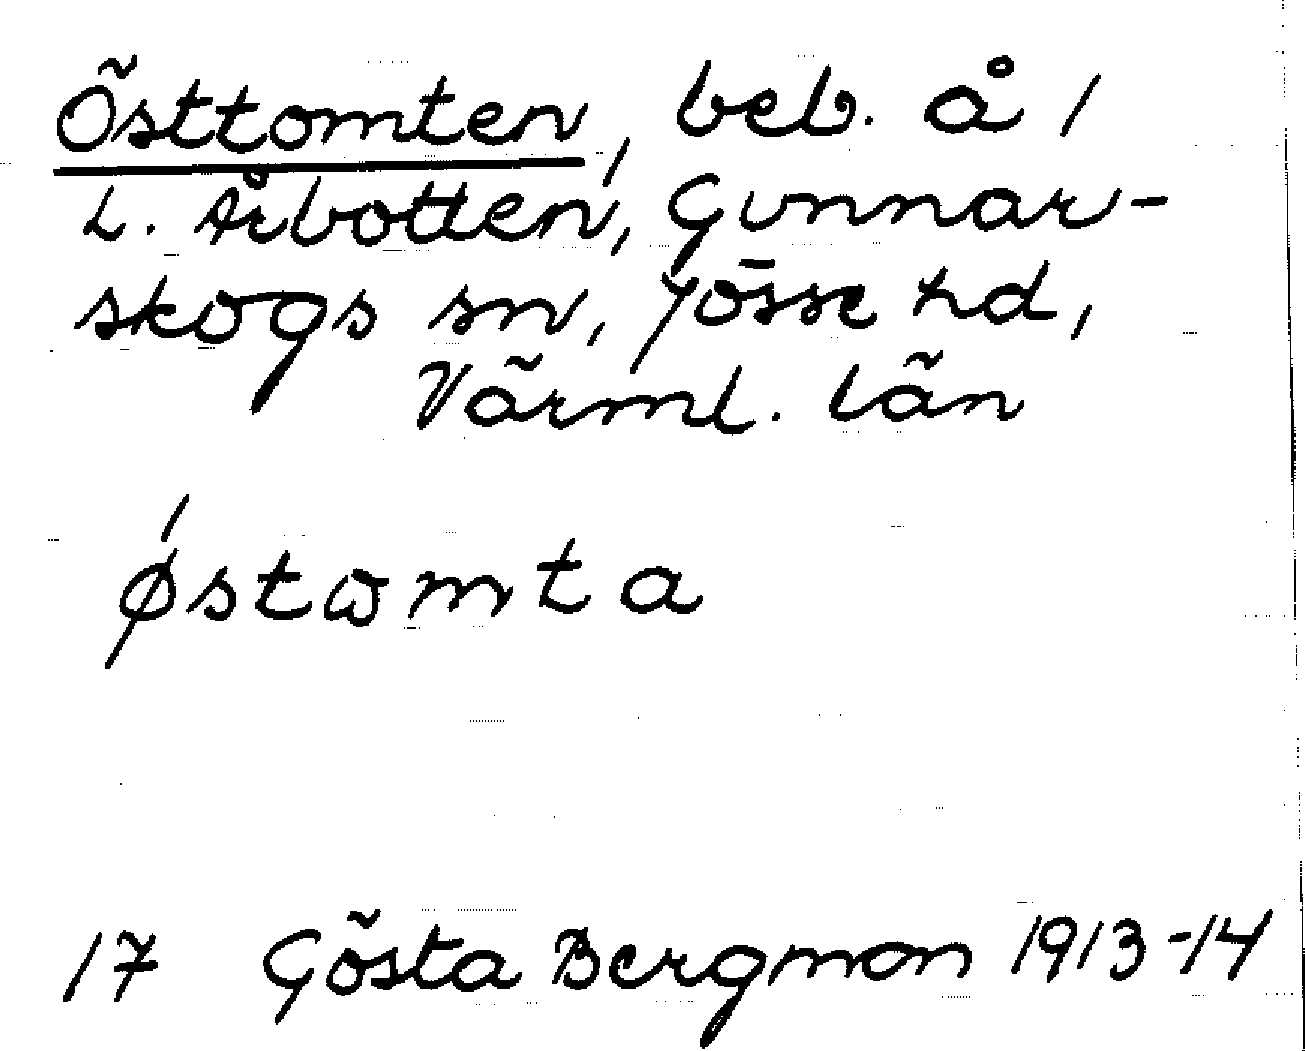 Östtomten, beb. å 1/
L. Årbotten, Gunnar-
skogs sn, Jösse hd,
Värml. län
ǿstɷmta
17 Gösta Bergman 1913-14